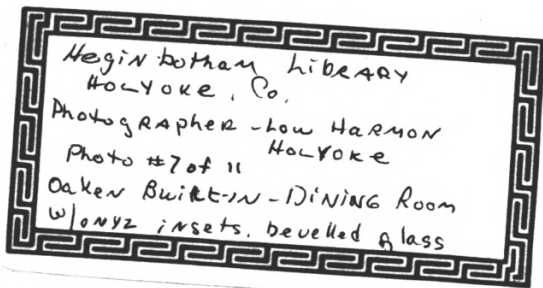 Heginbotham Library
Holyoke, Co.
Photographer - Lou Harmon
Holyoke
Photo #7 of 11
Oaken Built-in - Dining Room
w/onyz insets, bevelled glass